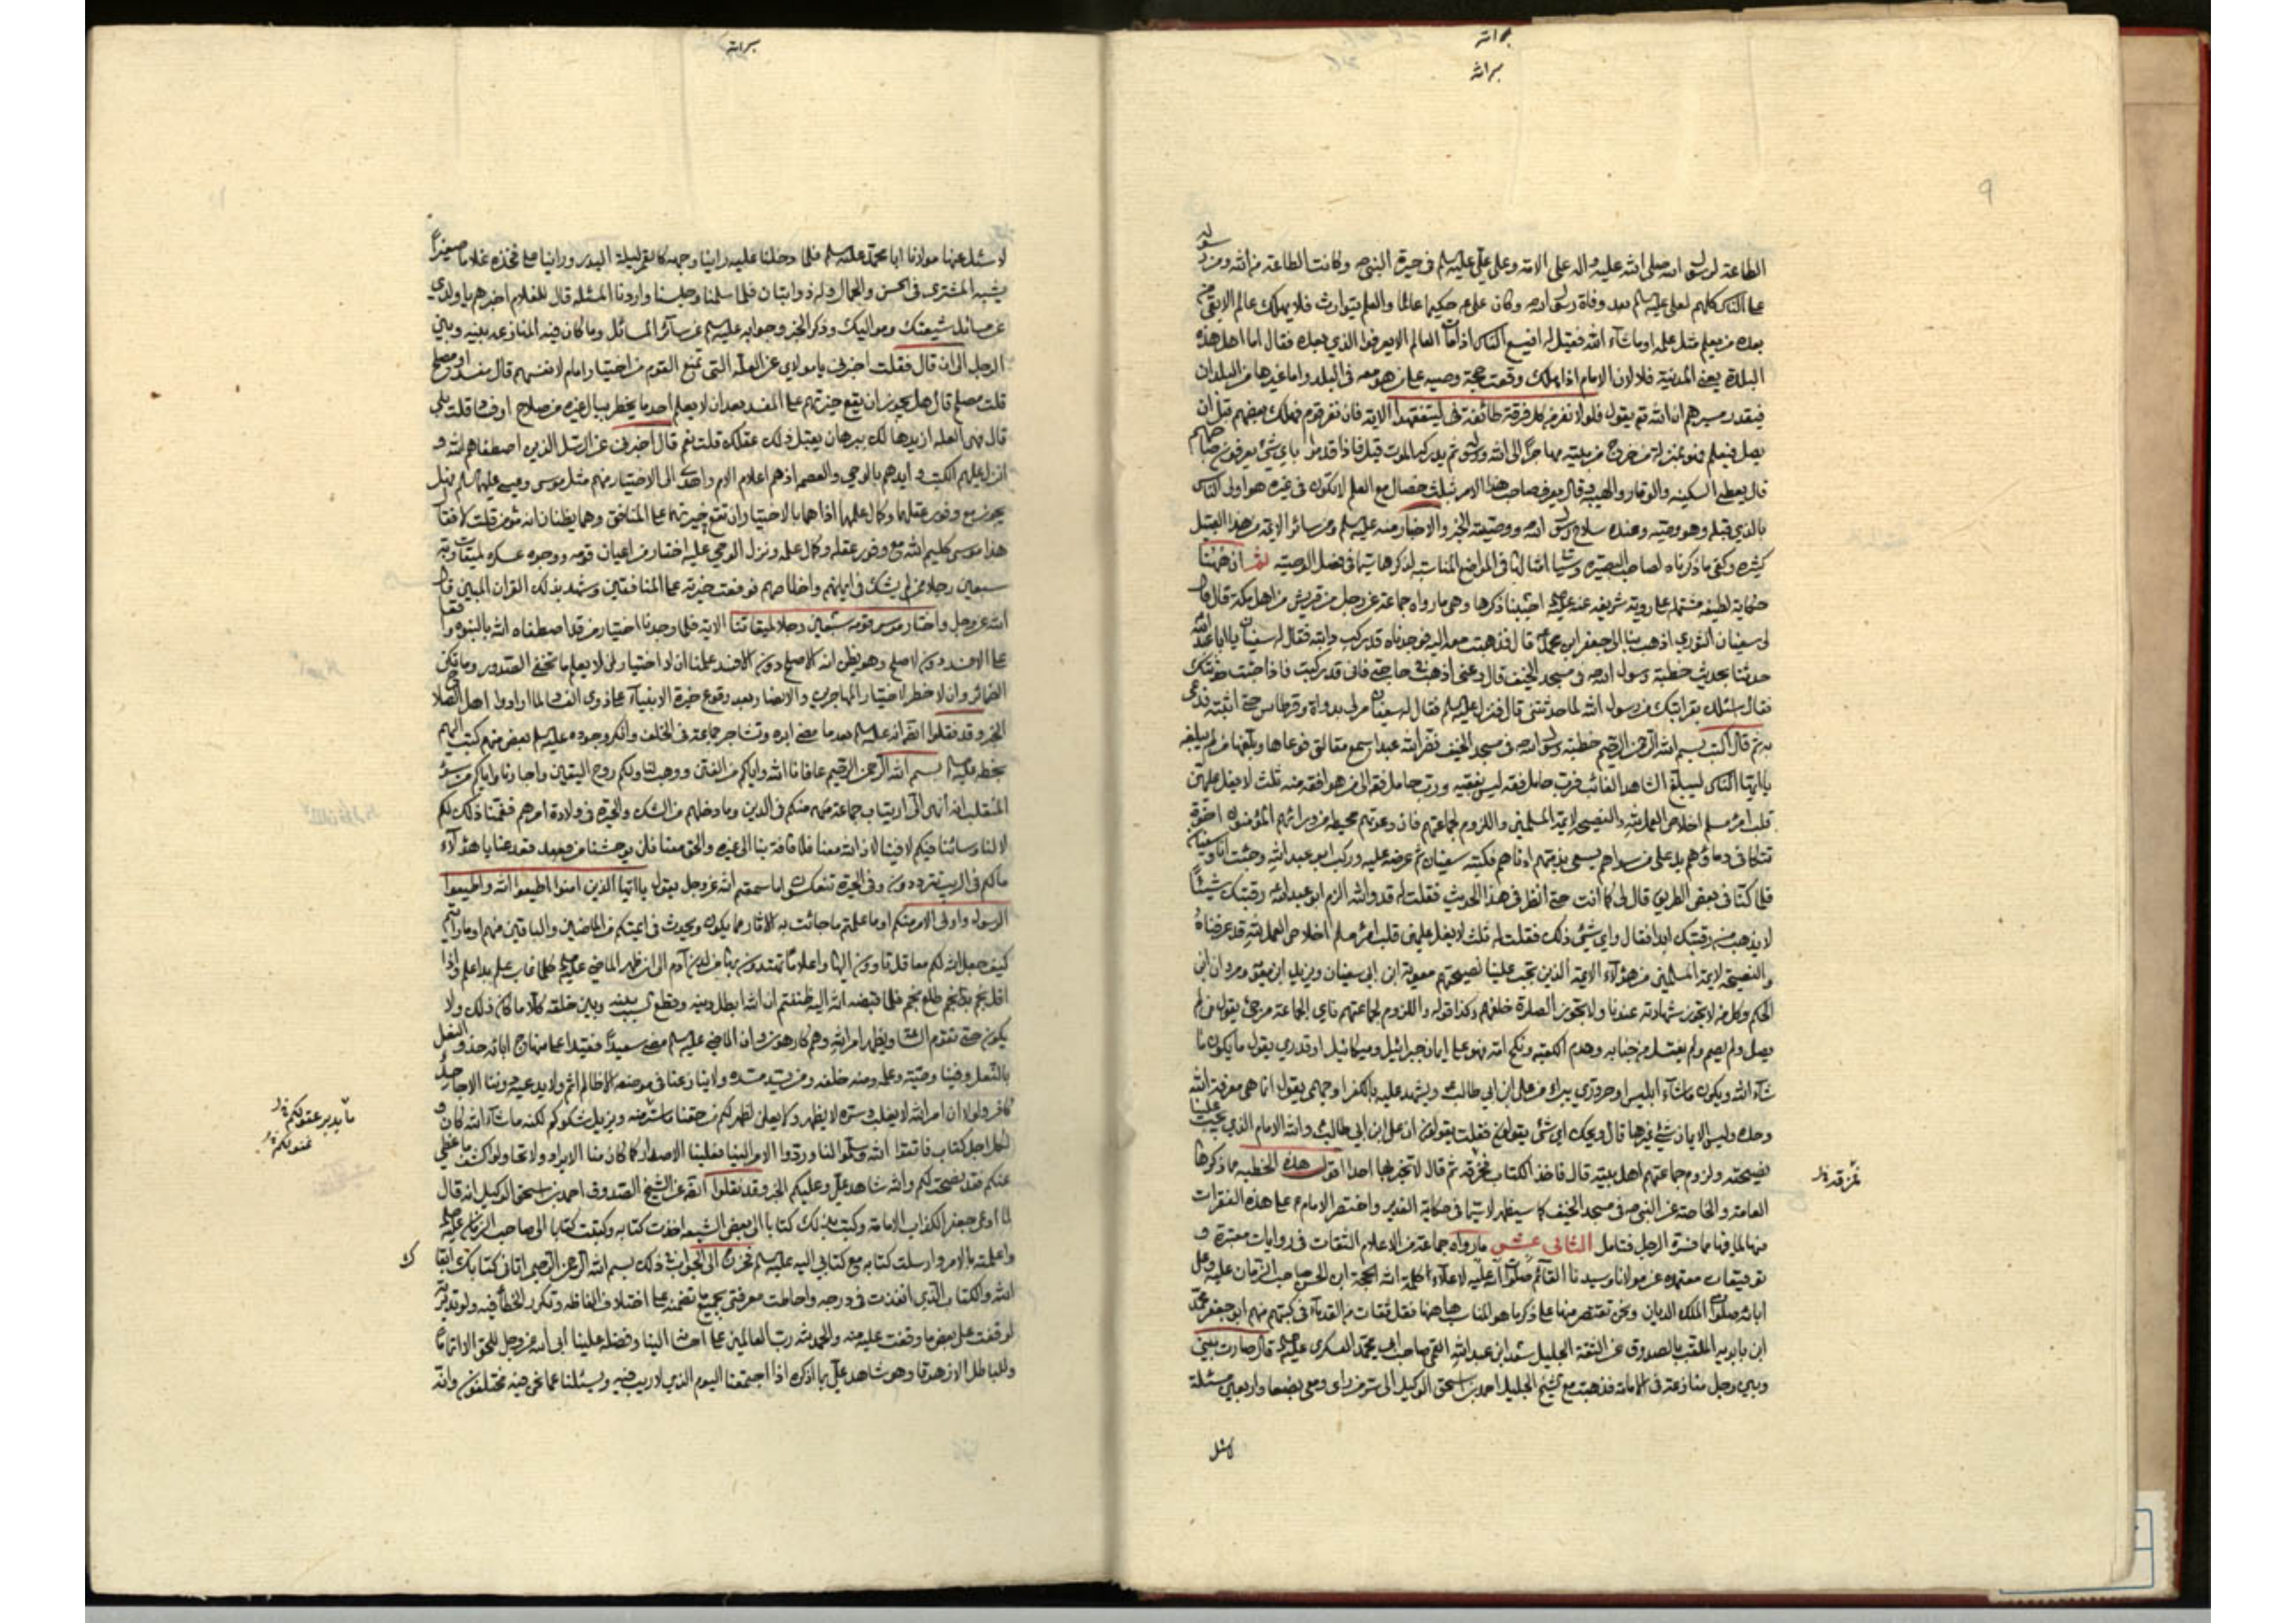 الطاعة لرسول الله صلى الله عليه واله على الامة وعلى علي عليه السلم في حيوة النبي ص وكانت الطاعة من الله ومن رسوله
على الناس كلهم لعلي عليه السلم بعد وفاة رسول الله ص وكان علي ع حكيما عالما والعلم يتوارث فلا يهلك عالم الا بقي من
بعده من يعلم مثل علمه او ما شاء الله فقيل له افيسع الناس اذا مات العالم الا يعرفوا الذي بعده فقال اما اهل هذه
البلدة يعني المدينة فلا لان الامام اذا هلك وقعت حجة وصيه على من هو معه في البلد واما غيرها من البلدان
فبقدر مسيرهم ان الله تع يقول فلولا نفر من كل فرقة طائفة ليتفقهوا الاية فان نفر قوم فهلك بعضهم قبل ان
يصل فيعلم فهو بمنزلة من خرج من بيته مهاجرا الى الله ورسوله ثم يدركه الموت قيل فاذا قدموا باي شئ يعرفون صاحبهم
قال يعطى السكينة والوقار والهيبة وقال يعرف صاحب هذا الامر بثلث خصال مع العلم لا تكون في غيره هو اولى الناس
بالذي قبله وهو وصيه وعنده سلاح رسول الله ص ووصيته الخبر والاخبار منه عليه السلم ومن سائر الائمة من هذا القبيل
كثيرة وكفى ما ذكرناه لصاحب البصيرة
حكاية لطيفة مشتملة على رواية شريفة عنه عليه السلم احببنا ذكرها وهي ما رواه جماعة عن رجل من قريش من اهل مكة قال قال
لي سفيان الثوري اذهب بنا الى جعفر ابن محمد ع قال فذهبت معه اليه فوجدناه قد ركب دابته فقال له سفيان يا ابا عبد الله
حدثنا بحديث خطبة رسول الله ص في مسجد الخيف قال دعني اذهب في حاجتي فاني قد ركبت فاذا جئت حدثتك
فقال اسئلك بقرابتك من رسول الله لما حدثتني قال فنزل عليه السلم فقال له سفيان مر لي بدواة وقرطاس حتى اثبته فدعى
به ثم قال اكتب بسم الله الرحمن الرحيم خطبة رسول الله ص في مسجد الخيف نضر الله عبدا سمع مقالتي فوعاها وبلغها من لم يبلغه
يا ايها الناس ليبلغ الشاهد الغائب فرب حامل فقه ليس بفقيه ورب حامل فقه الى من هو افقه منه ثلث لا يغل عليهن
قلب امرء مسلم اخلاص العمل لله والنصيحة لائمة المسلمين واللزوم لجماعتهم فان دعوتهم محيطة من ورائهم المؤمنون اخوة
تتكافى دماؤهم وهم يد على من سواهم يسعى بذمتهم ادناهم فكتبه سفيان ثم عرضه عليه وركب ابو عبد الله وجئت انا وسفيان
فلما كنا في بعض الطريق قال لي كما انت حتى انظر في هذا الحديث فقلت له قد والله الزم ابو عبد الله ع رقبتك شيئا
لا يذهب من رقبتك ابدا فقال واي شئ ذلك فقلت له ثلث لا يغل عليهن قلب امرء مسلم اخلاص العمل لله قد عرفناه
والنصيحة لائمة المسلمين من هؤلاء الائمة الذين تجب علينا نصيحتهم معوية ابن ابي سفيان ويزيد ابن معوية ومروان ابن
الحكم وكل من لا يجوز شهادته عندنا ولا يجوز الصلوة خلفهم وكذا قوله واللزوم لجماعتهم فاي الجماعة مرجئ يقول من لم
يصل ولم يصم ولم يغتسل من جنابة وهدم الكعبة ونكح امه فهو على ايمان جبرائيل وميكائيل او قدري يقول ما يكون ما
شاء الله ويكون ما شاء ابليس او حروري يبرء من علي ابن ابي طالب ويشهد عليه بالكفر او جهمي يقول انما هي معرفة الله
وحده وليس الايمان شئ غيرها قال ويحك اي شئ يقولون فقلت يقولون ان علي ابن ابي طالب والله الامام الذي يجب علينا
نصيحته ولزوم جماعتهم اهل بيته قال فاخذ الكتاب فخرقه ثم قال لا تخبر بها احدا اقول هذه الخطبة مما ذكرها
العامة والخاصة عن النبي ص في مسجد الخيف كما سيظهر واختصر الامام ع على هذه الفقرات
منها لما فيها مما فسره الرجل فتامل الثاني عشر ما رواه جماعة من الاعلام الثقات في روايات معتبرة و
توقيعات معتمدة عن مولانا وسيدنا القائم الحجة ابن الحسن صاحب الزمان عليه وعلى
ابائه صلوات الملك الديان ونحن نقتصر منها على ذكر ما هو المناسب هاهنا فنقل ثقات من القدماء في كتبهم منهم ابو جعفر محمد
ابن بابويه الملقب بالصدوق عن الثقة الجليل سعد ابن عبد الله القمي صاحب ابي محمد العسكري عليه السلم قال صارت بيني
وبين رجل منازعة في الامامة فذهبت مع الشيخ الجليل احمد بن اسحق الوكيل الى سر من راى ومعي بضعا واربعين مسئلة
لاسئل
لاسئل عنها مولانا ابا محمد عليه السلم فلما دخلنا عليه راينا وجهه كالقمر ليلة البدر وراينا على فخذه غلاما صغيرا
يشبه المشتري في الحسن والجمال وله ذوابتان فلما سلمنا وجلسنا واردنا المسئلة قال للغلام اخبرهم يا ولدي
عن مسائل شيعتك ومواليك وذكر الخبر وجوابه عليه السلم عن سائر المسائل وما كان فيه المنازعة بينه وبين
الرجل الى ان قال فقلت اخبرني يا مولاي عن العلة التي تمنع القوم من اختيار امام لانفسهم قال مفسد او مصلح
قلت مصلح قال هل يجوز ان يقع خيرتهم على المفسد بعد ان لا يعلم احد ما يخطر ببال غيره من صلاح او فساد قلت بلى
قال فهي العلة ازيدها لك ببرهان يقبل ذلك عقلك قلت نعم قال اخبرني عن الرسل الذين اصطفاهم الله و
انزل عليهم الكتب وايدهم بالوحي والعصمة اذ هم اعلام الامم واهدى الى الاختيار منهم مثل موسى وعيسى عليهما السلم هل
يجوز مع وفور عقلهما وكمال علمهما اذا هما بالاختيار ان تقع خيرتهما على المنافق وهما يظنان انه مؤمن قلت لا فقال
هذا موسى كليم الله مع وفور عقله وكمال علمه ونزول الوحي عليه اختار من اعيان قومه ووجوه عسكره لميقات ربه
سبعين رجلا ممن لم يشك في ايمانهم واخلاصهم فوقعت خيرته على المنافقين وشهد بذلك القران المبين قال
الله عز وجل واختار موسى قومه سبعين رجلا لميقاتنا الاية فلما وجدنا اختيار من قد اصطفاه الله بالنبوة واقعا
على الافسد دون الاصلح وهو يظن انه الاصلح دون الافسد علمنا ان لا اختيار لمن لا يعلم ما تخفي الصدور وما تكن
الضمائر وان لا خطر لاختيار المهاجرين والانصار بعد وقوع خيرة الانبياء على ذوي الفساد لما ارادوا اهل الصلاح
الخبر وقد نقلوا انه عليه السلم بعد ما مضى ابوه وتشاجر جماعة في الخلف وانكر وجوده عليه السلم بعض منهم كتب اليهم
بخطه عليه السلم بسم الله الرحمن الرحيم عافانا الله واياكم من الفتن ووهب لنا ولكم روح اليقين واجارنا واياكم من سوء
المنقلب انه انهى الى ارتياب جماعة منكم في الدين وما دخلهم من الشك والحيرة في ولاة امرهم فغمنا ذلك لكم
لا لنا وسائنا فيكم لا فينا لان الله معنا فلا فاقة بنا الى غيره والحق معنا فلن يوحشنا من قعد عنا يا هؤلاء
ما لكم في الريب تترددون وفي الحيرة تنعكسون اما سمعتم الله عز وجل يقول يا ايها الذين امنوا اطيعوا الله واطيعوا
الرسول واولي الامر منكم او ما علمتم ما جائت به الاثار مما يكون ويحدث في ائمتكم من الماضين والباقين منهم او ما رايتم
كيف جعل الله لكم معاقل تاوون اليها واعلاما تهتدون بها من لدن آدم الى ان ظهر الماضي عليه السلم كلما غاب علم بدا علم واذا
افل نجم طلع نجم فلما قبضه الله اليه ظننتم ان الله ابطل دينه وقطع السبب بينه وبين خلقه كلا ما كان ذلك ولا
يكون حتى تقوم الساعة ويظهر امر الله وهم كارهون وان الماضي عليه السلم مضى سعيدا فقيدا على منهاج ابائه حذو النعل
بالنعل وفينا وصيته وعلمه ومنه خلفه ومن يسد مسده ولا ينازعنا في موضعه الا ظالم آثم ولا يدعيه دوننا الا جاحد
كافر ولولا ان امر الله لا يغلب وسره لا يظهر ولا يعلن لظهر لكم من حقنا ما تبهر منه ويزيل شكوككم لكنه ما شاء الله كان و
لكل اجل كتاب فاتقوا الله وسلموا لنا وردوا الامر الينا فعلينا الاصدار كما كان منا الايراد ولا تحاولوا كشف ما غطي
عنكم فقد نصحت لكم والله شاهد علي وعليكم الخبر وقد نقلوا ايضا عن الشيخ الصدوق احمد بن اسحق الوكيل انه قال
لما ادعى جعفر الكذاب الامامة وكتب بذلك كتابا الى بعض الشيعة اخذت كتابه وكتبت كتابا الى صاحب الزمان عليه السلم
واعلمته بالامر وارسلت كتابه مع كتابي اليه عليه السلم فخرج الى الجواب في ذلك بسم الله الرحمن الرحيم اتاني كتابك ابقاك
الله والكتاب الذي انفذت في درجه واحاطت معرفتي بجميع ما تضمنه على اختلاف الفاظه وتكرر الخطاء فيه ولو تدبرته
لوقفت على بعض ما وقفت عليه منه والحمد لله رب العالمين على احسانه الينا وفضله علينا ابى الله عز وجل للحق الا اتماما
وللباطل الا زهوقا وهو شاهد علي بما اذكره اذا اجتمعنا اليوم الذي لا ريب فيه ويسئلنا عما نحن فيه مختلفون وانه